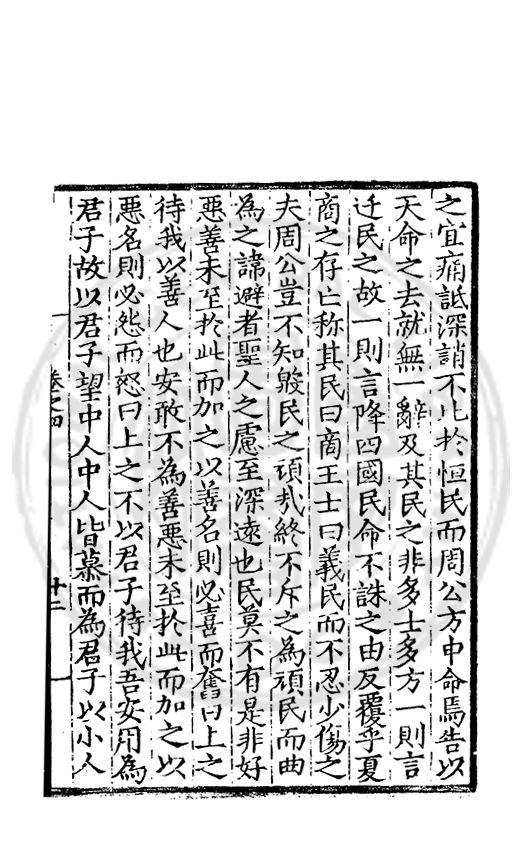 之宜痛詆深誚不比於恒民而周公方申命焉告以
天命之去就無一辭及其民之非多士多方一則言
迁民之故一則言降四國民命不誅之由反覆乎夏
商之存亡称其民曰商王士曰義民而不忍少傷之
夫周公豈不知殷民之頑哉終不斥之為頑民而曲
為之諱避者聖人之慮至深遠也民莫不有是非好
惡善未至於此而加之以善名則必喜而奮曰上之
待我以善人也安敢不為善惡未至於此而加之以
惡名則必怨而怒曰上之不以君子待我吾安用為
君子故以君子望中人中人皆慕而為君子以小人
卷之四
十二